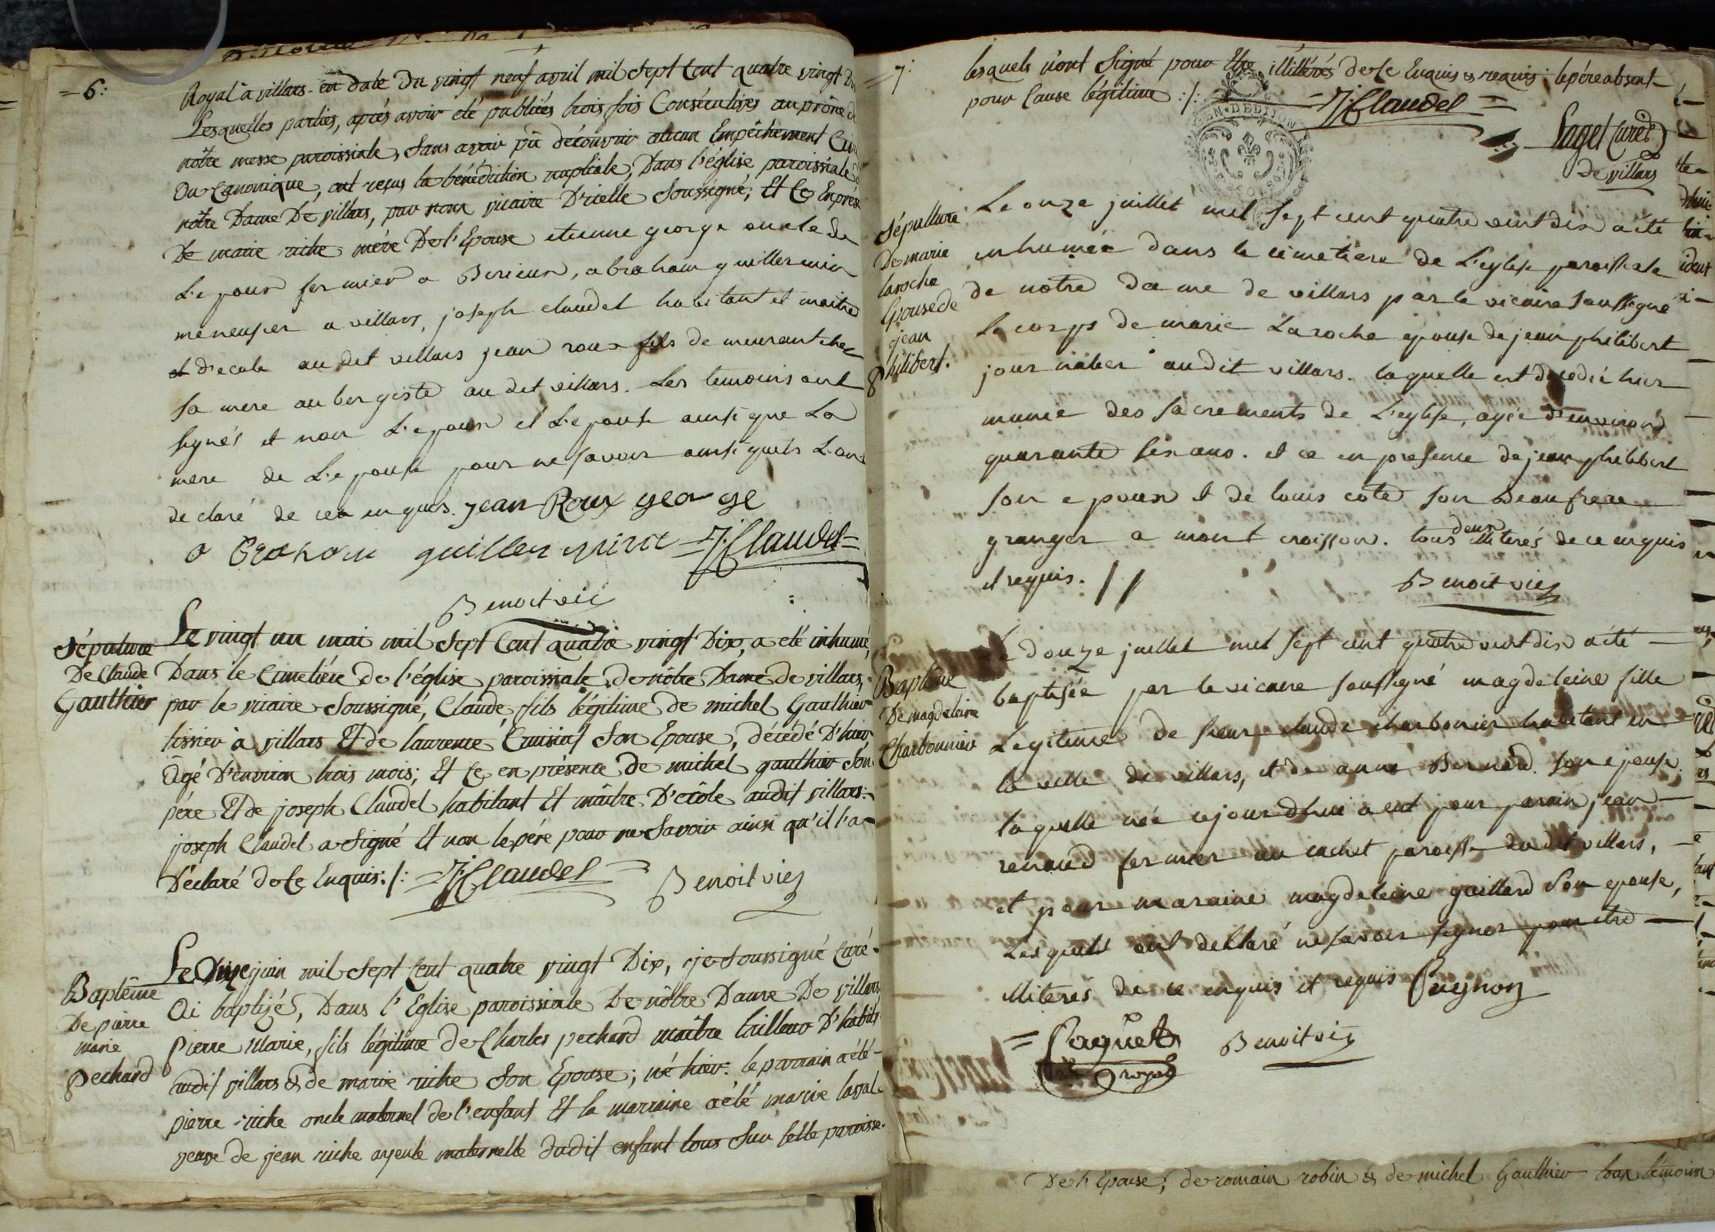 6:
Royal à villars en date du vingt neuf avril mil sept cent quatre vingt
Lesquelles parties, aprés avoir eté publiées trois fois Consécutives au prône
nôtre messe paroissiale, sans avoir pû découvrir aucun Empêchement
Ou Canonique, ont reçus la bénédiction nuptiale, Dans l'église paroissiale
nôtre Dame De villars, par nous vicaire D'icelle Soussigné; Et Ce
De marie riche mére De l'Epouse etienne george oncle de
L'epoux fermier a Birieux, abraham guillermin
menusier a villars, joseph claudel habitant et maitre
d'ecole audit villars jean roux fils de
sa mere aubergiste audit villars. Les temoins ont
signés et non L'epoux et L'epouse ainsi que La
mere de L'epouse pour ne savoir ainsi quils L'ont
declaré de ce enquis. jean Roux george
a Braham guillermin =J: Claudel=
Benoit vic
Sépulture
De Claude
Gauthier
Le vingt un mai mil Sept Cent quatre vingt Dix, a eté inhumé,
Dans le Cimetiére de l'église paroissiale de nôtre Dame de villars,
par le vicaire Soussigné, Claude fils légitime de michel Gauthier
tissier à villars Et de laurence Son Epouse, décédé D'hier
âgé D'environ trois mois; Et Ce en présence de michel gauthier Son
pére Et de joseph Claudel habitant Et maître D'école audit villars:
joseph Claudel a Signé Et non le pére pour ne Savoir ainsi qu'il l'a
Déclaré de Ce Enquis./: =J: Claudel= Benoit vic
Baptême
De pierre
marie
Pechard
Le juin mil Sept Cent quatre vingt Dix, je Soussigné Curé
Ai baptizé, Dans l'Eglise paroissiale De nôtre Dame De villars
Pierre Marie, fils légitime de Charles pechard maître tailleur D'habits
audit villars & de marie riche Son Epouse; né hier. le parrain a été
pierre riche oncle maternel de l'enfant Et la marraine a été marie
veuve de jean riche ayeule maternelle dudit enfant tous Sur cette paroisse.
7:
lesquels n'ont Signé pour Etre illitérés de Ce Enquis & requis: le pére absent
pour Cause légitime :/: =J: Claudel=
Saget Curé
De villars
Sépulture
De marie
laroche
Epouse de
jean
philibert.
Le onze juillet mil sept cent quatre vint dix a été
inhumée dans le cimetiere de L'eglise paroissiale
de notre dame de villars par le vicaire soussigné
Le corps de marie Laroche epouse de jean philibert
journalier audit villars. laquelle est décédée hier
munie des sacrements de L'eglise, agée d'environs
quarante six ans. et ce en presence de jean philibert
son epoux et de louis cote son Beaufrere
granger a mont croisson. tous deux illiterés de ce enquis
et requis. // Benoit vic
Baptême
De magdeleine
Charbonnier
Le douze juillet mil sept cent quatre vint dix a été
baptisée par le vicaire soussigné magdeleine fille
Legitime de sieur claude charbonier habitant en
la ville de villars, et de anne Bernard son epouse.
laquelle née aujourdhui a eut pour parain jean
renaud fermier au cachet paroisse dudit villars,
et pour maraine magdeleine gaillard son epouse,
Lesquels ont declaré ne savoir signer pour etre
illiterés de ce enquis et requis
=Paquet Benoit vic
royal
De l'Epouse; de romain robin & de michel Gauthier tous temoins